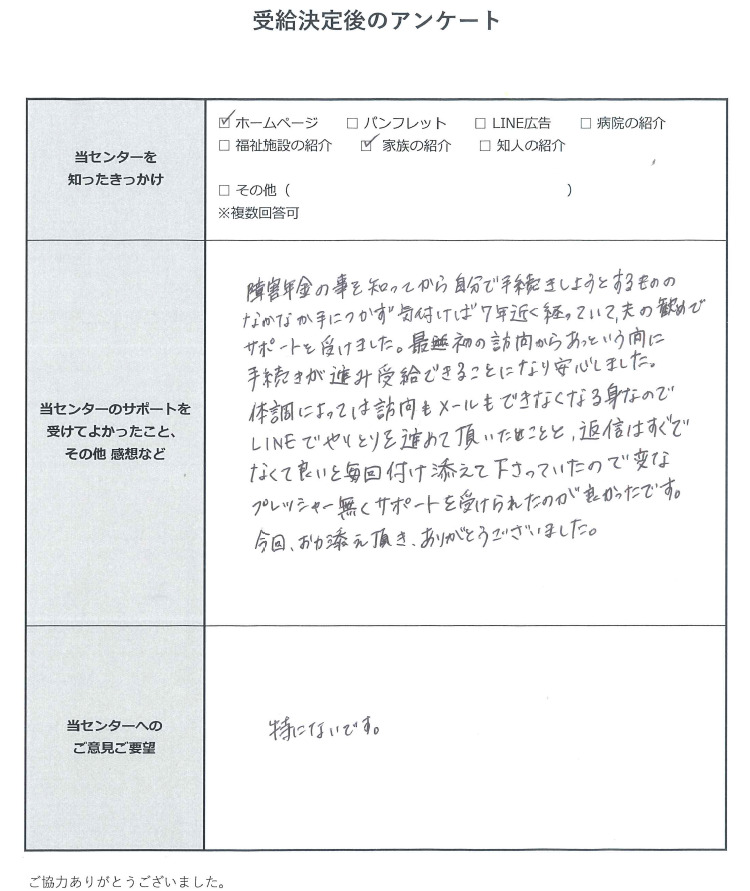 受給決定後のアンケート
当センターを
知ったきっかけ
☑ ホームページ □ パンフレット □ LINE広告 □ 病院の紹介
□ 福祉施設の紹介 ☑ 家族の紹介 □ 知人の紹介
□ その他（ ）
※複数回答可
当センターのサポートを
受けてよかったこと、
その他 感想など
障害年金の事を知ってから自分で手続きしようとするものの
なかなか手につかず気付けば7年近く経っていて、夫の勧めで
サポートを受けました。最初の訪問からあっという間に
手続きが進み受給できることになり安心しました。
体調によっては訪問もメールもできなくなる身なので
LINEでやりとりを進めて頂いたことと、返信はすぐで
なくて良いと毎回付け添えて下さっていたので変な
プレッシャー無くサポートを受けられたのが良かったです。
今回、お力添え頂き、ありがとうございました。
当センターへの
ご意見ご要望
特にないです。
ご協力ありがとうございました。